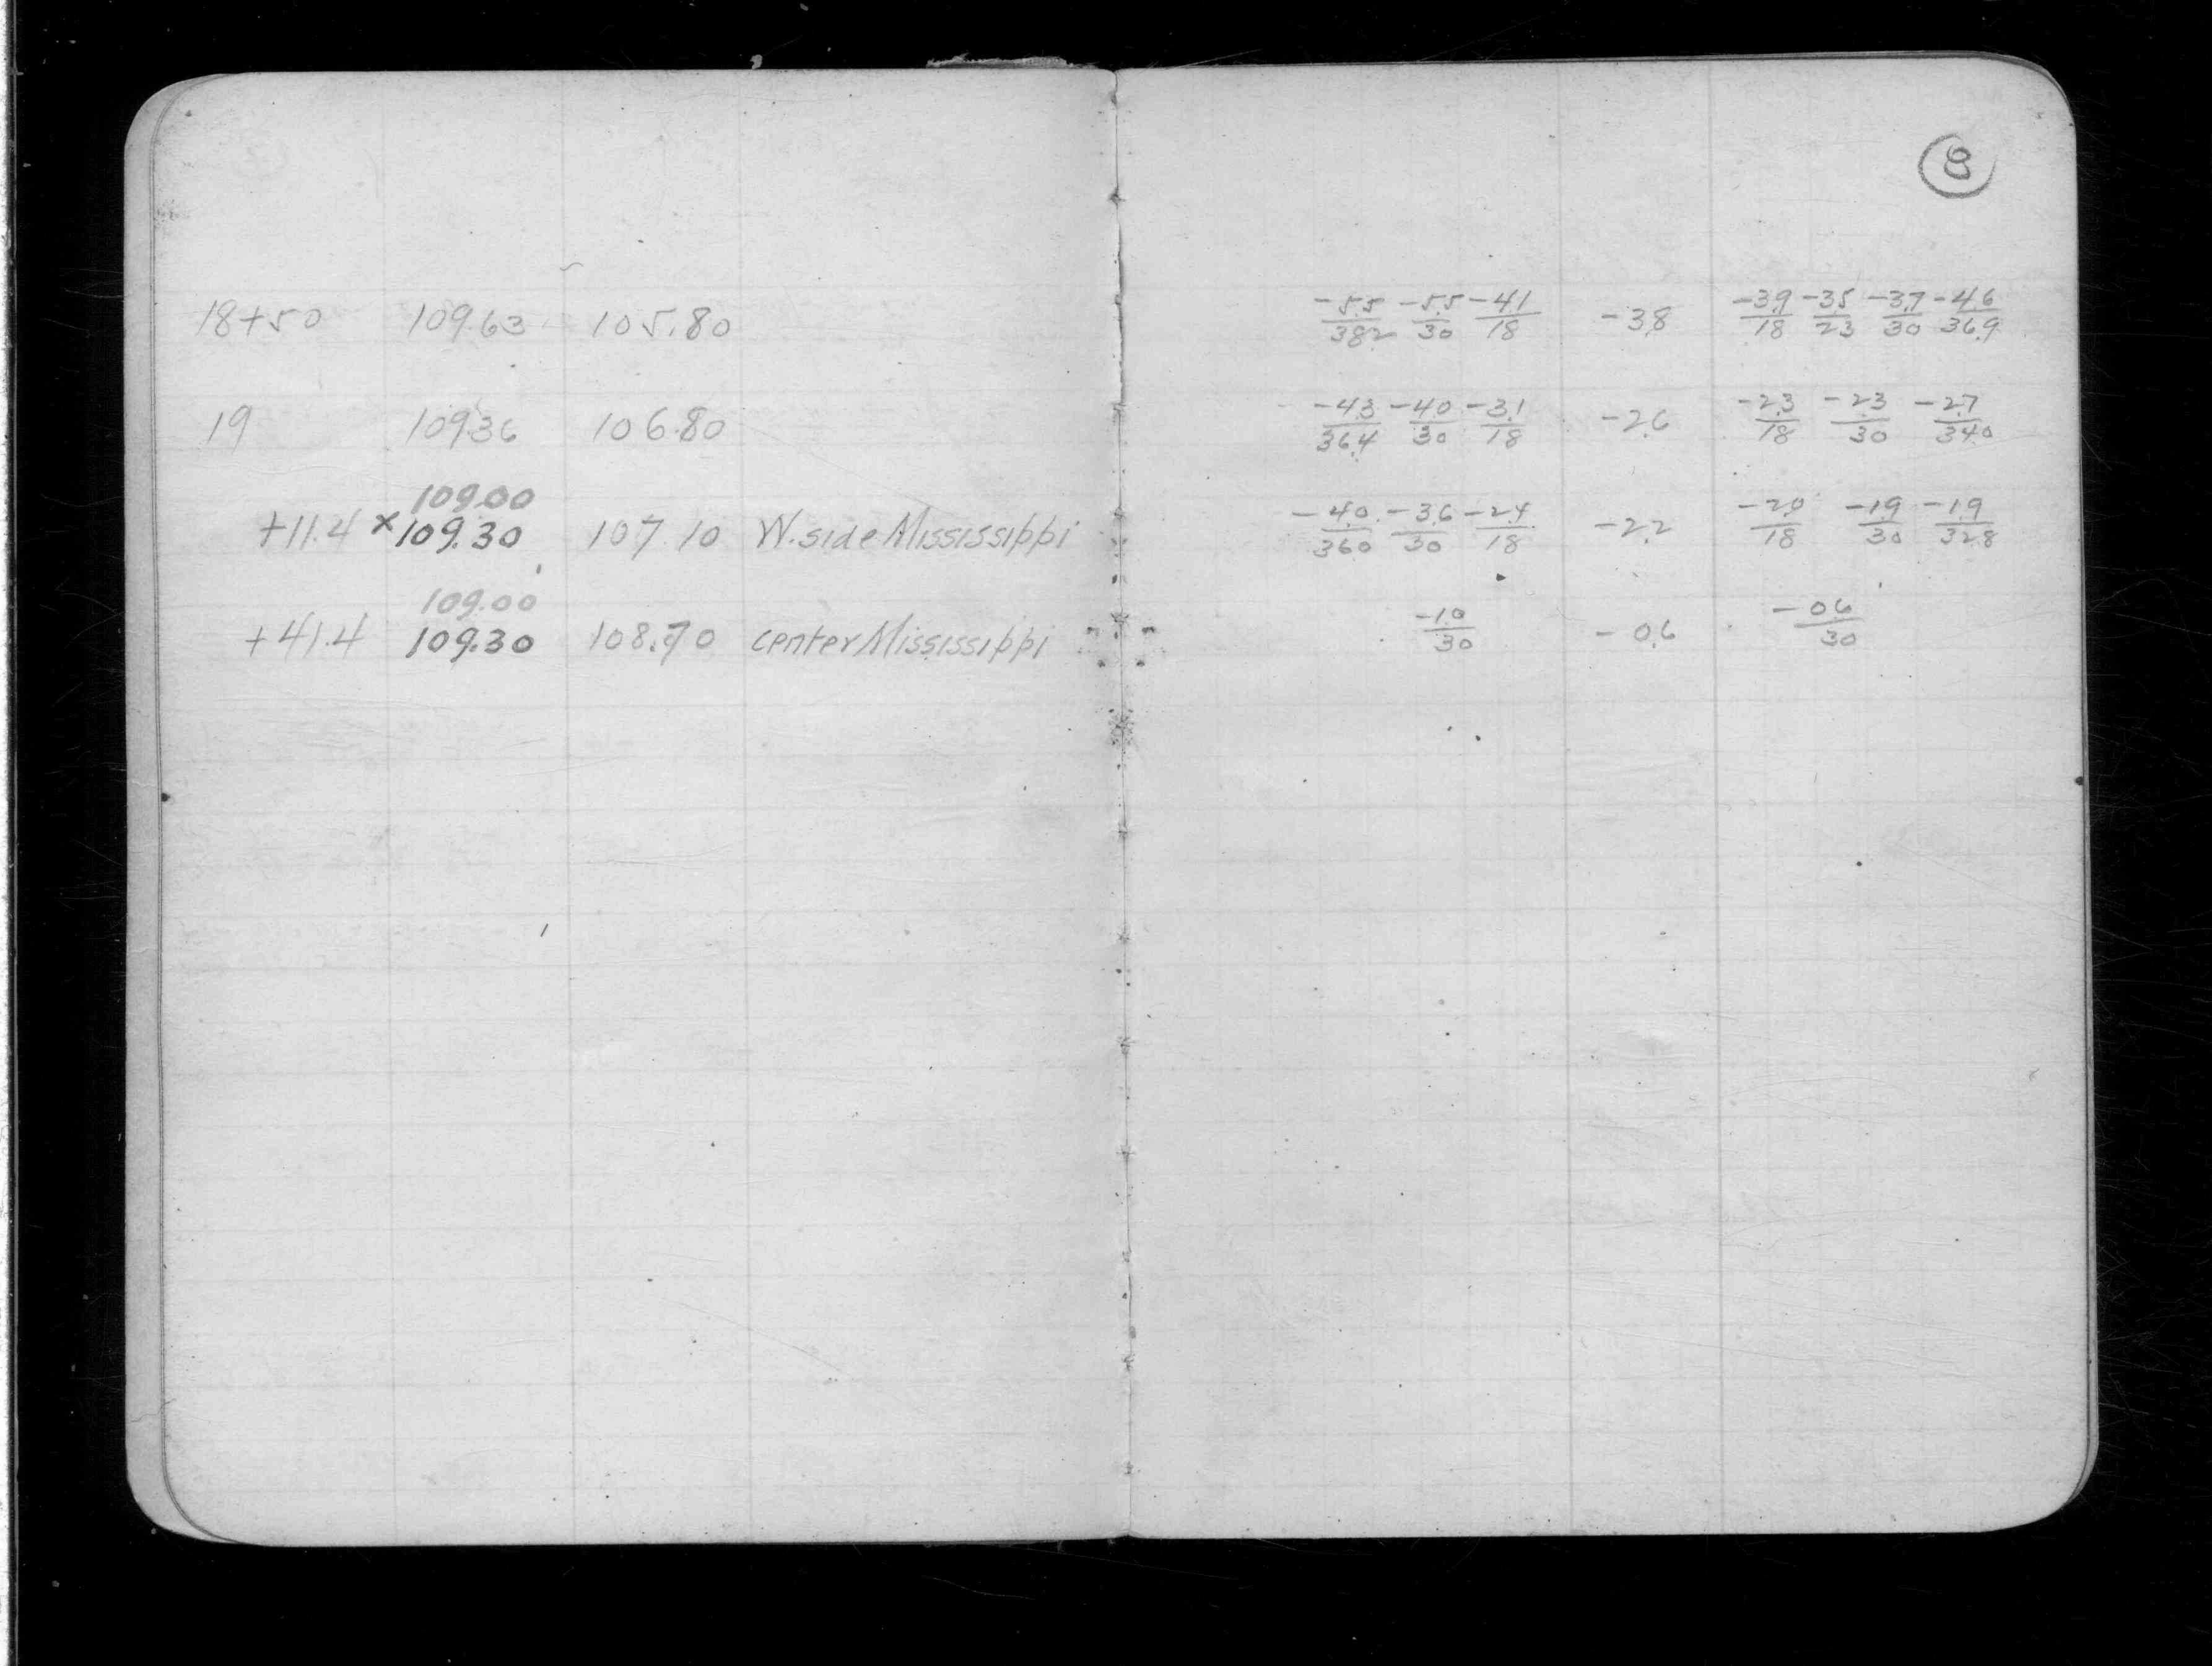 8
18+50 109.63 105.80 -5.5/38.2 -5.5/30 -4.1/18 -3.8 -3.9/18 -3.5/23 -3.7/30 -4.6/36.9
19 109.36 106.80 -4.3/36.4 -4.0/30 -3.1/18 -2.6 -2.3/18 -2.3/30 -2.7/34.0
109.00
+11.4 ×109.30 107.10 W. side Mississippi -4.0/36.0 -3.6/30 -2.4/18 -2.2 -2.0/18 -1.9/30 -1.9/32.8
109.00
+41.4 109.30 108.70 center Mississippi -1.0/30 -0.6 -0.6/30